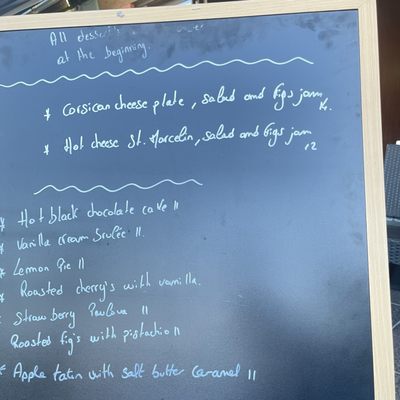 All dess
at the beginning.
* Corsican cheese plate, salad and figs jam 14.
* Hot cheese St. Marcelin, salad and figs jam 12
* Hot black chocolate cake 11
* Vanilla cream brulée 11.
* Lemon Pie 11
* Roasted cherry's with vanilla.
* Strawberry Pavlova 11
Roasted fig's with pistachio 11
* Apple tatin with salt butter caramel 11